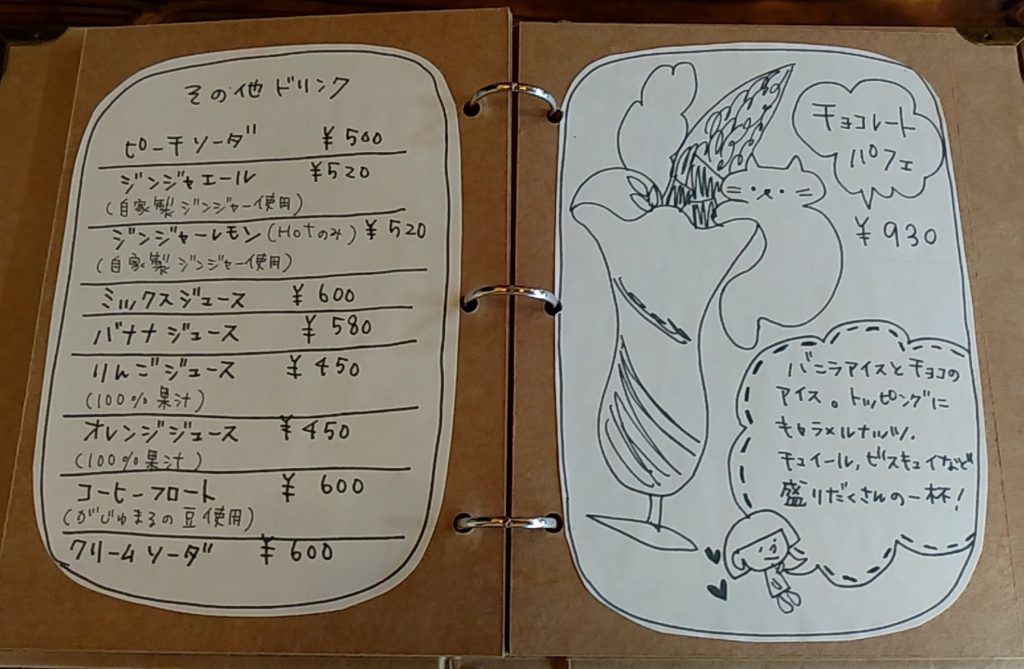 その他ドリンク
ピーチソーダ ¥500
ジンジャエール ¥520
(自家製ジンジャー使用)
ジンジャーレモン(Hotのみ) ¥520
(自家製ジンジャー使用)
ミックスジュース ¥600
バナナジュース ¥580
りんごジュース ¥450
(100%果汁)
オレンジジュース ¥450
(100%果汁)
コーヒーフロート ¥600
(がじゅまるの豆使用)
クリームソーダ ¥600
チョコレート
パフェ
¥930
バニラアイスとチョコの
アイス。トッピングに
キャラメルナッツ、
チュイール、ビスキュイなど
盛りだくさんの一杯!